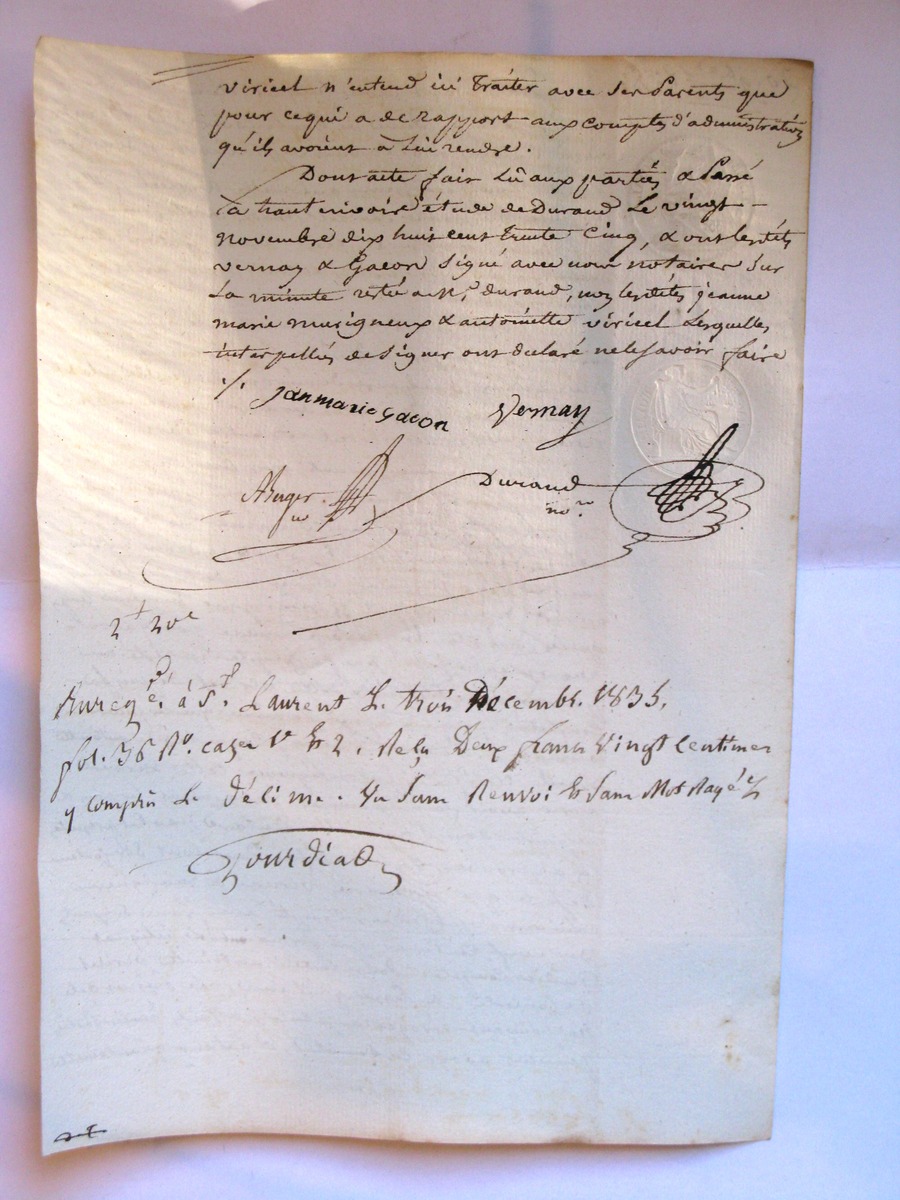 viricel n'entend ici traiter avec ses Parents que
pour ce qui a de rapport aux comptes d'administration
qu'ils avoient à Lui rendre.
Dont acte fait Lû aux parties & Passé
à haut rivoire étude de Durand Le vingt
novembre dix huit cent trente Cinq, & ont lesdits
vernay & Gacon Signé avec nous notaires Sur
La minute restée a Me. durand, non lesdites jeanne
marie murigneux & antoinette viricel Lesquelles
interpellés de Signer ont déclaré ne le Savoir faire
./.
jan marie gacon Vernay
Berger
Durand
nore.
2f 20c
Enregé. à St. Laurent Le trois Décembre. 1835,
fol. 36 Ro. cases 1e Et 2. Reçu Deux francs Vingt Centimes
y compris Le Décime. Sans Renvoi Et Sans Mot Rayé